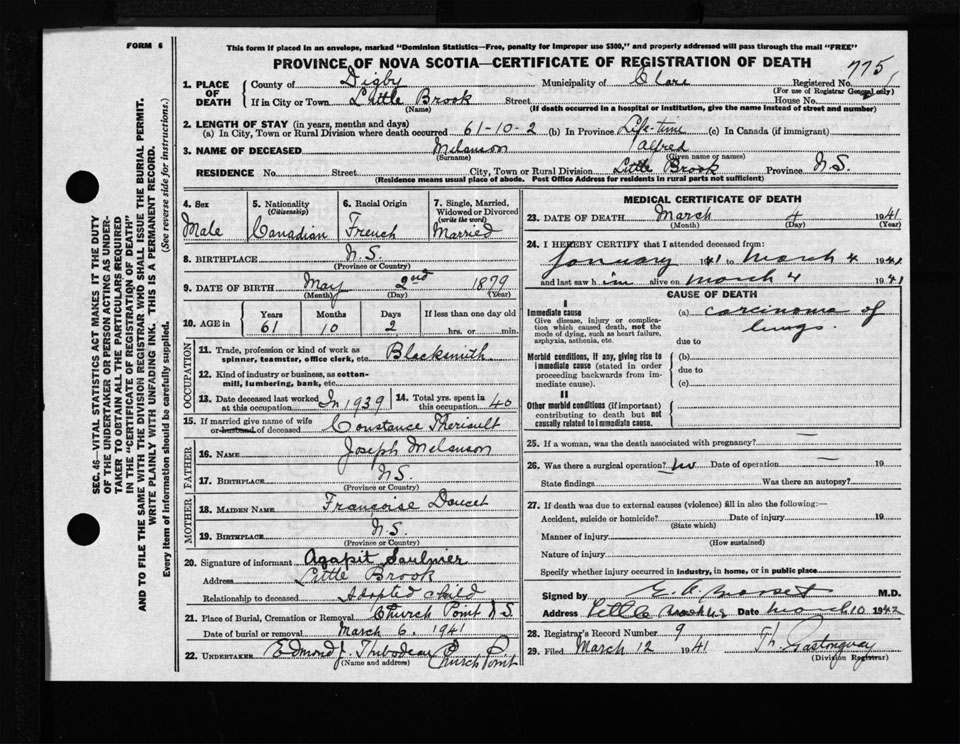 FORM 6
This form if placed in an envelope, marked "Dominion Statistics—Free, penalty for improper use $300," and properly addressed will pass through the mail "FREE"
PROVINCE OF NOVA SCOTIA—CERTIFICATE OF REGISTRATION OF DEATH
1. PLACE OF DEATH
County of Digby Municipality of Clare Registered No. 775
(For use of Registrar General only)
If in City or Town Little Brook Street House No.
(Name) (If death occurred in a hospital or institution, give the name instead of street and number)
2. LENGTH OF STAY (in years, months and days)
(a) In City, Town or Rural Division where death occurred 61-10-2 (b) In Province Life-time (c) In Canada (if immigrant)
3. NAME OF DECEASED Melanson Alfred
(Surname) (Given name or names)
RESIDENCE No. Street City, Town or Rural Division Little Brook Province N.S.
(Residence means usual place of abode. Post Office Address for residents in rural parts not sufficient)
4. Sex
Male
5. Nationality
(Citizenship)
Canadian
6. Racial Origin
French
7. Single, Married, Widowed or Divorced
(write the word)
Married
8. BIRTHPLACE N.S.
(Province or Country)
9. DATE OF BIRTH May 2nd 1879
(Month) (Day) (Year)
10. AGE in
Years Months Days If less than one day old
61 10 2 hrs. or min.
OCCUPATION
11. Trade, profession or kind of work as spinner, teamster, office clerk, etc. Blacksmith
12. Kind of industry or business, as cotton-mill, lumbering, bank, etc.
13. Date deceased last worked at this occupation In 1939
14. Total yrs. spent in this occupation 40
15. If married give name of wife or husband of deceased Constance Theriault
FATHER
16. NAME Joseph Melanson
17. BIRTHPLACE N.S.
(Province or Country)
MOTHER
18. MAIDEN NAME Françoise Doucet
19. BIRTHPLACE N.S.
(Province or Country)
20. Signature of informant Agapit Saulnier
Address Little Brook
Relationship to deceased Adopted child
21. Place of Burial, Cremation or Removal Church Point N.S.
Date of burial or removal March 6, 1941
22. UNDERTAKER Edmond J. Thibodeau Church Point
(Name and address)
MEDICAL CERTIFICATE OF DEATH
23. DATE OF DEATH March 4 1941
(Month) (Day) (Year)
24. I HEREBY CERTIFY that I attended deceased from:
January 1941 to March 4 1941
and last saw him alive on March 4 1941
CAUSE OF DEATH
I
Immediate cause
Give disease, injury or complication which caused death, not the mode of dying, such as heart failure, asphyxia, asthenia, etc.
(a) carcinoma of lungs.
due to
Morbid conditions, if any, giving rise to immediate cause (stated in order proceeding backwards from immediate cause).
(b)
due to
(c)
II
Other morbid conditions (if important) contributing to death but not causally related to immediate cause.
25. If a woman, was the death associated with pregnancy? —
26. Was there a surgical operation? no Date of operation — 19
State findings Was there an autopsy?
27. If death was due to external causes (violence) fill in also the following:—
Accident, suicide or homicide? Date of injury 19
(State which)
Manner of injury
(How sustained)
Nature of injury
Specify whether injury occurred in industry, in home, or in public place
Signed by M.D.
Address Little Brook NS Date March 10 1942
28. Registrar's Record Number 9
29. Filed March 12 1941 Th. Gastonguay
(Division Registrar)
SEC. 46—VITAL STATISTICS ACT MAKES IT THE DUTY
OF THE UNDERTAKER OR PERSON ACTING AS UNDER-
TAKER TO OBTAIN ALL THE PARTICULARS REQUIRED
IN THE "CERTIFICATE OF REGISTRATION OF DEATH"
AND TO FILE THE SAME WITH THE DIVISION REGISTRAR WHO SHALL ISSUE THE BURIAL PERMIT.
WRITE PLAINLY WITH UNFADING INK. THIS IS A PERMANENT RECORD.
Every item of information should be carefully supplied. (See reverse side for instructions.)